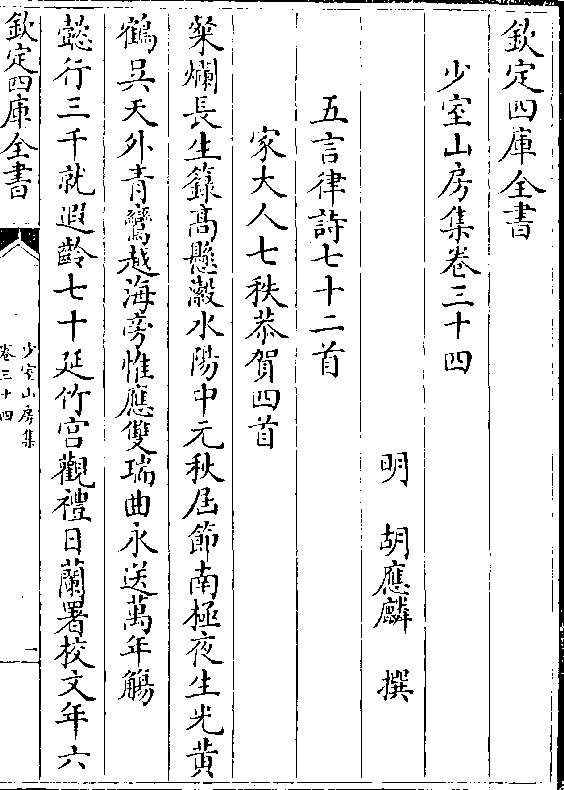 欽定四庫全書
少室山房集卷三十四
明 胡應麟 撰
五言律詩七十二首
家大人七秩恭賀四首
粲爛長生籙髙懸瀫水陽中元秋屆節南極夜生光黄
鶴吳天外青鸞越海旁惟應雙瑞曲永送萬年觴
懿行三千就遐齡七十延竹宫觀禮日蘭署校文年六
欽定四庫全書
少室山房集
卷三十四
一